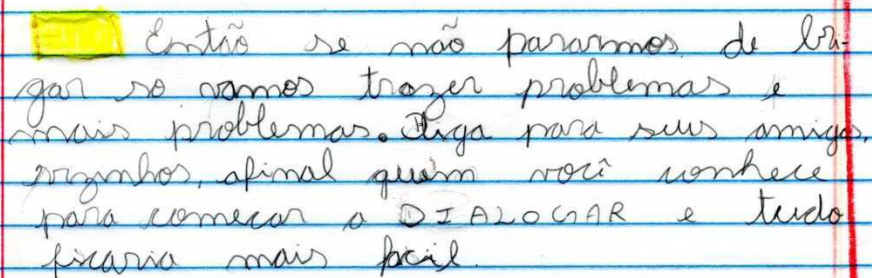 Então se não pararmos de bri-
gar so vamos trazer problemas e
mais problemas. Diga para seus amigos,
vizinhos, afinal quem você conhece
para comecar a DIALOGAR e tudo
ficaria mais facil